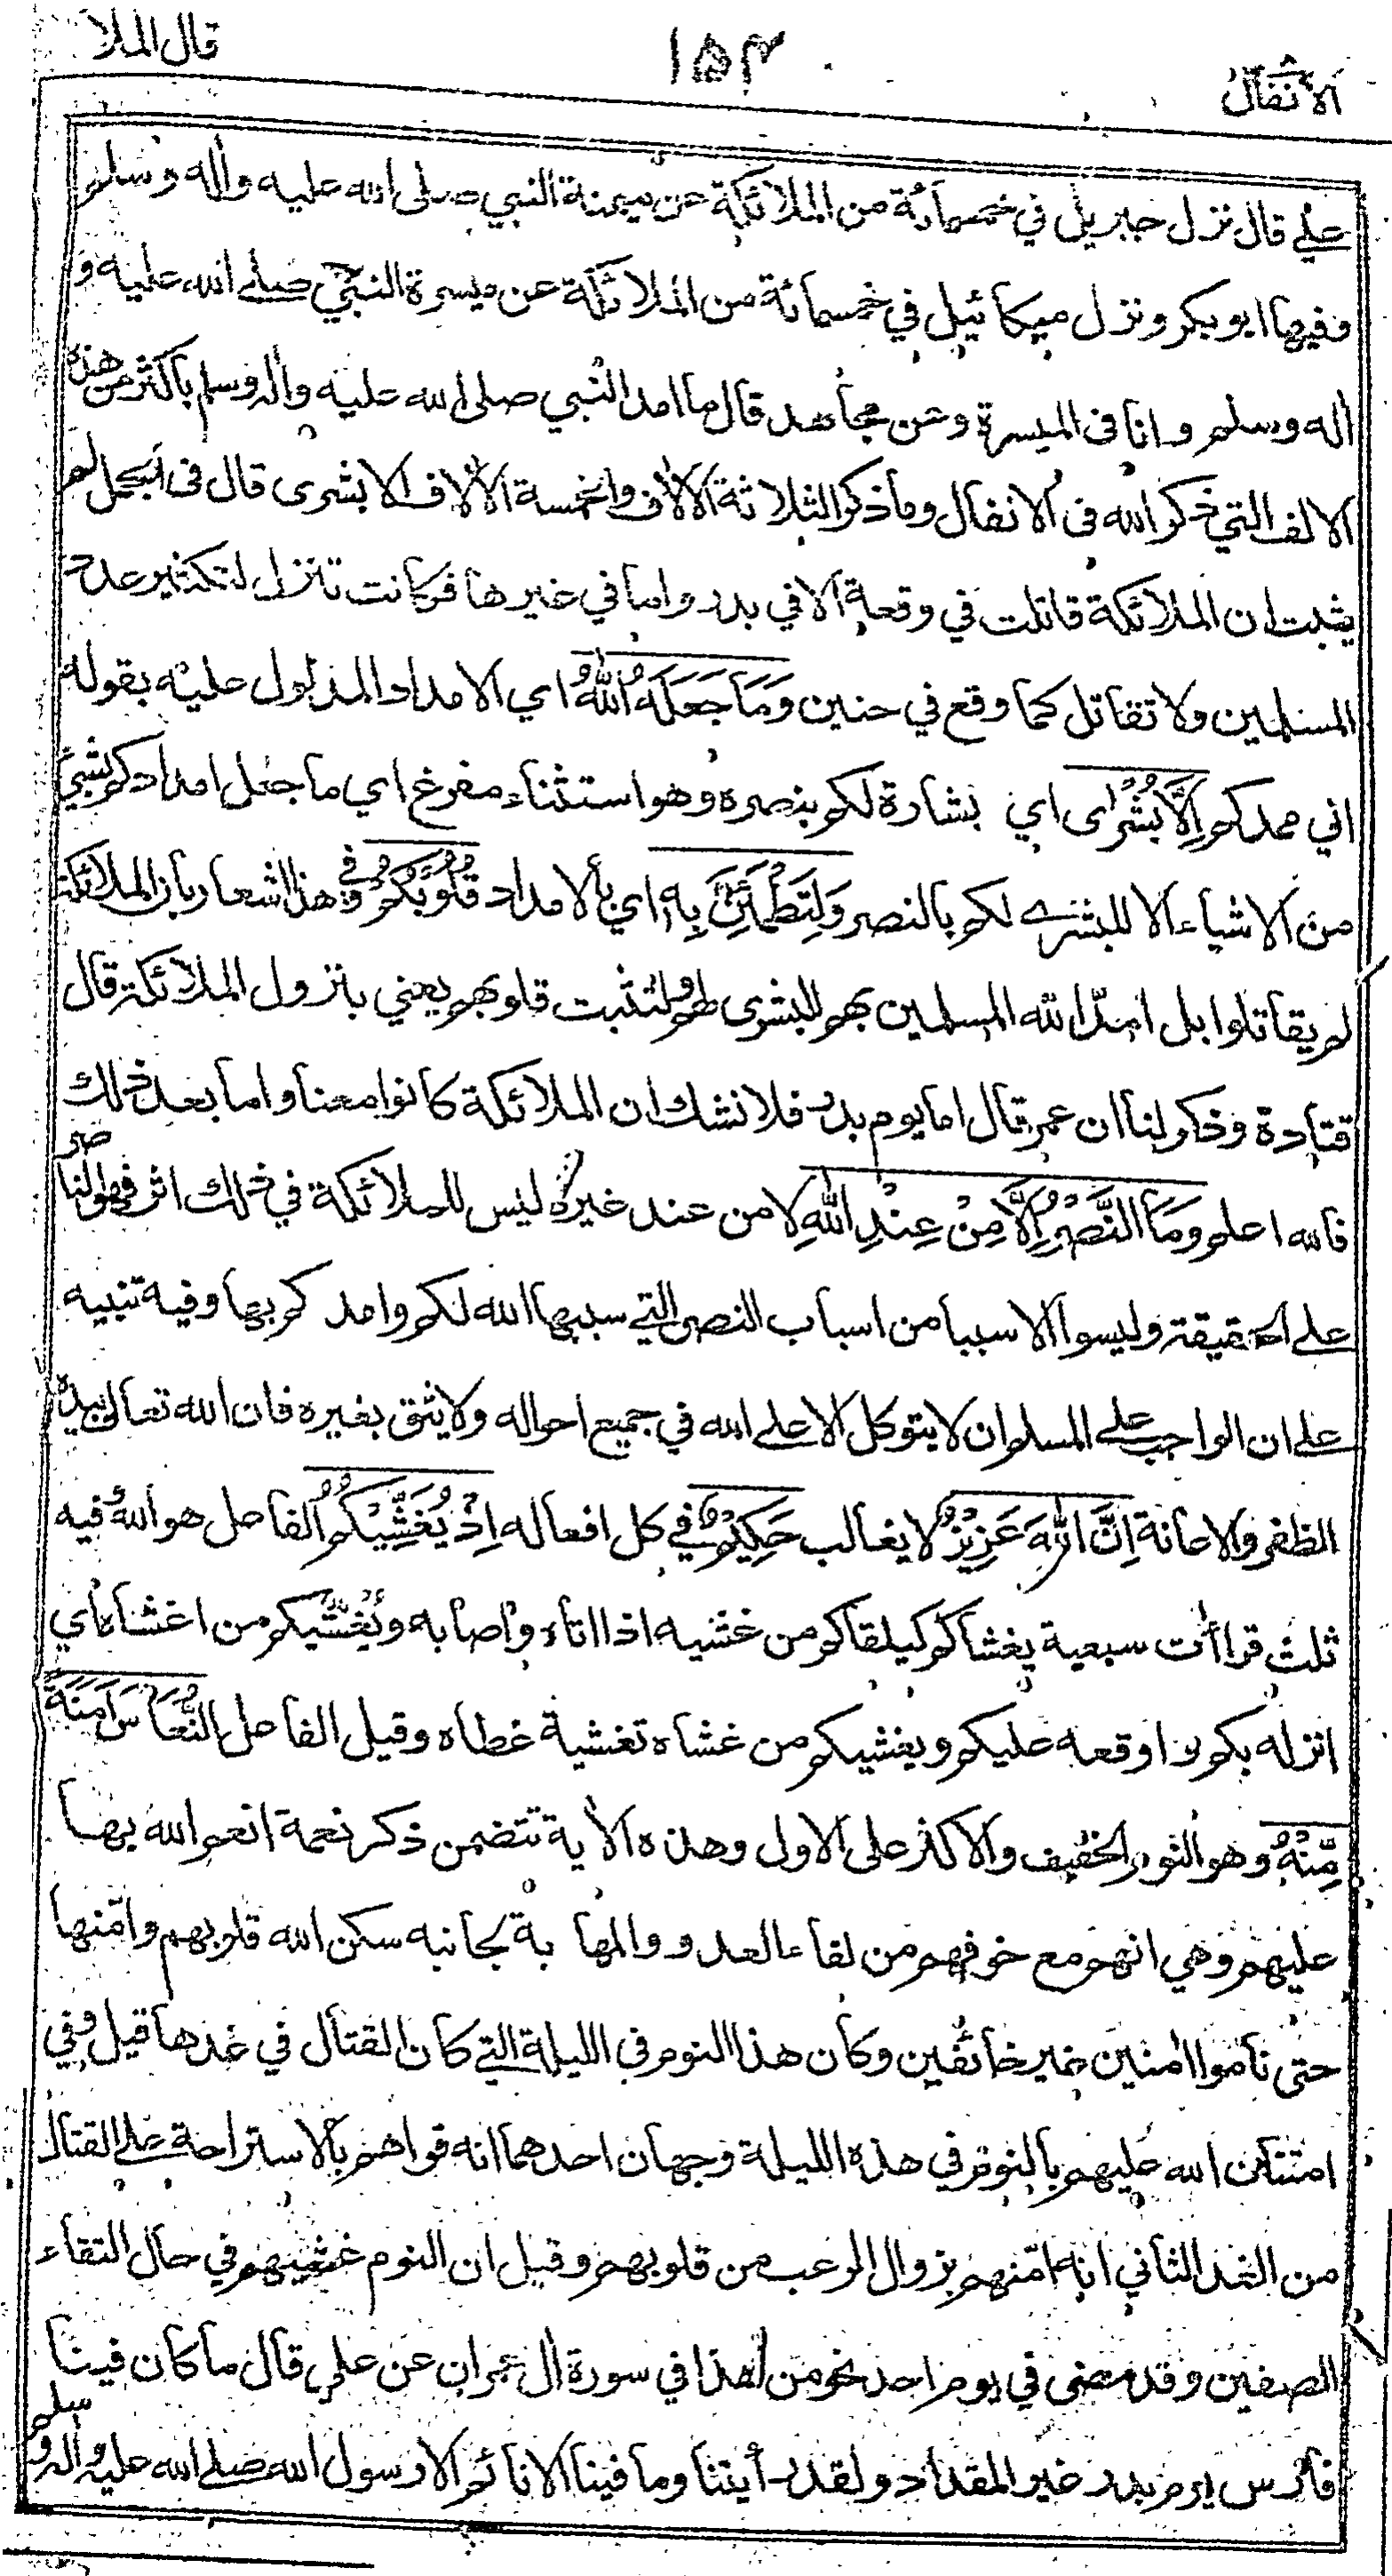 الأنفال
١٥٣
قال الملأ
علي قال نزل جبريل في خمسمائة من الملائكة عن ميمنة النبي صلى الله عليه وأله وسلم
وفيها ابو بكر ونزل ميكائيل في خمسمائة من الملائكة عن ميسرة النبي صلى الله عليه و
أله وسلم وانا في الميسرة وعن مجاهد قال ما امد النبي صلى الله عليه وأله وسلم بأكثر من هذه
الالف التي ذكر الله في الانفال وما ذكر الثلاثة الألاف والخمسة الألاف الا بشرى قال في الجمل لم
يثبت ان الملائكة قاتلت في وقعة الا في بدر واما في غيرها فكانت تنزل لتكثير عدد
المسلمين ولا تقاتل كما وقع في حنين وَمَا جَعَلَهُ اللّٰهُ اي الامداد المدلول عليه بقوله
اني ممدكم اِلَّا بُشْرٰى اي بشارة لكم بنصره وهو استثناء مفرغ اي ما جعل امدادكم بشيء
من الاشياء الا للبشرى لكم بالنصر وَلِتَطْمَئِنَّ بِهٖ اي بالامداد قُلُوْبُكُمْ وفي هذا اشعار بان الملائكة
لم يقاتلوا بل امدّ الله المسلمين بهم للبشرى لهم ولتثبت قلوبهم يعني بنزول الملائكة قال
قتادة وذكر لنا ان عمر قال اما يوم بدر فلا نشك ان الملائكة كانوا معنا واما بعد ذلك
فالله اعلم وَمَا النَّصْرُ اِلَّا مِنْ عِنْدِ اللّٰهِ لا من عند غيره ليس للملائكة في ذلك اثر فهو الناصر
على الحقيقة وليسوا الا سببا من اسباب النصر التي سببها الله لكم وامدكم بها وفيه تنبيه
على ان الواجب على المسلم ان لا يتوكل الا على الله في جميع احواله ولا يثق بغيره فان الله تعالى بيده
الظفر والاعانة اِنَّ اللّٰهَ عَزِيْزٌ لا يغالب حَكِيْمٌ في كل افعاله اِذْ يُغَشِّيْكُمُ الفاعل هو الله وفيه
ثلث قراأت سبعية يغشاكم كيلقاكم من غشيه اذا اتاه واصابه ويُغْشيكم من اغشاه اي
انزله بكم واوقعه عليكم ويغشيكم من غشاه تغشية غطاه وقيل الفاعل النُّعَاسَ اَمَنَةً
مِّنْهُ وهو النوم الخفيف والاكثر على الاول وهذه الأية تتضمن ذكر نعمة انعم الله بها
عليهم وهي انهم مع خوفهم من لقاء العدو والمهابة بجانبه سكن الله قلوبهم وامّنها
حتى ناموا امنين غير خائفين وكان هذا النوم في الليلة التي كان القتال في غدها قيل وفي
امتنان الله عليهم بالنوم في هذه الليلة وجهان احدهما انه قواهم بالاستراحة على القتال
من الغد الثاني انه امّنهم بزوال الرعب من قلوبهم وقيل ان النوم غشيهم في حال التقاء
الصفين وقد مضى في يوم احد نحو من هذا في سورة ال عمران عن علي قال ما كان فينا
فارس يوم بدر غير المقداد ولقد رأيتنا وما فينا الا نائم الا رسول الله صلى الله عليه وأله وسلم